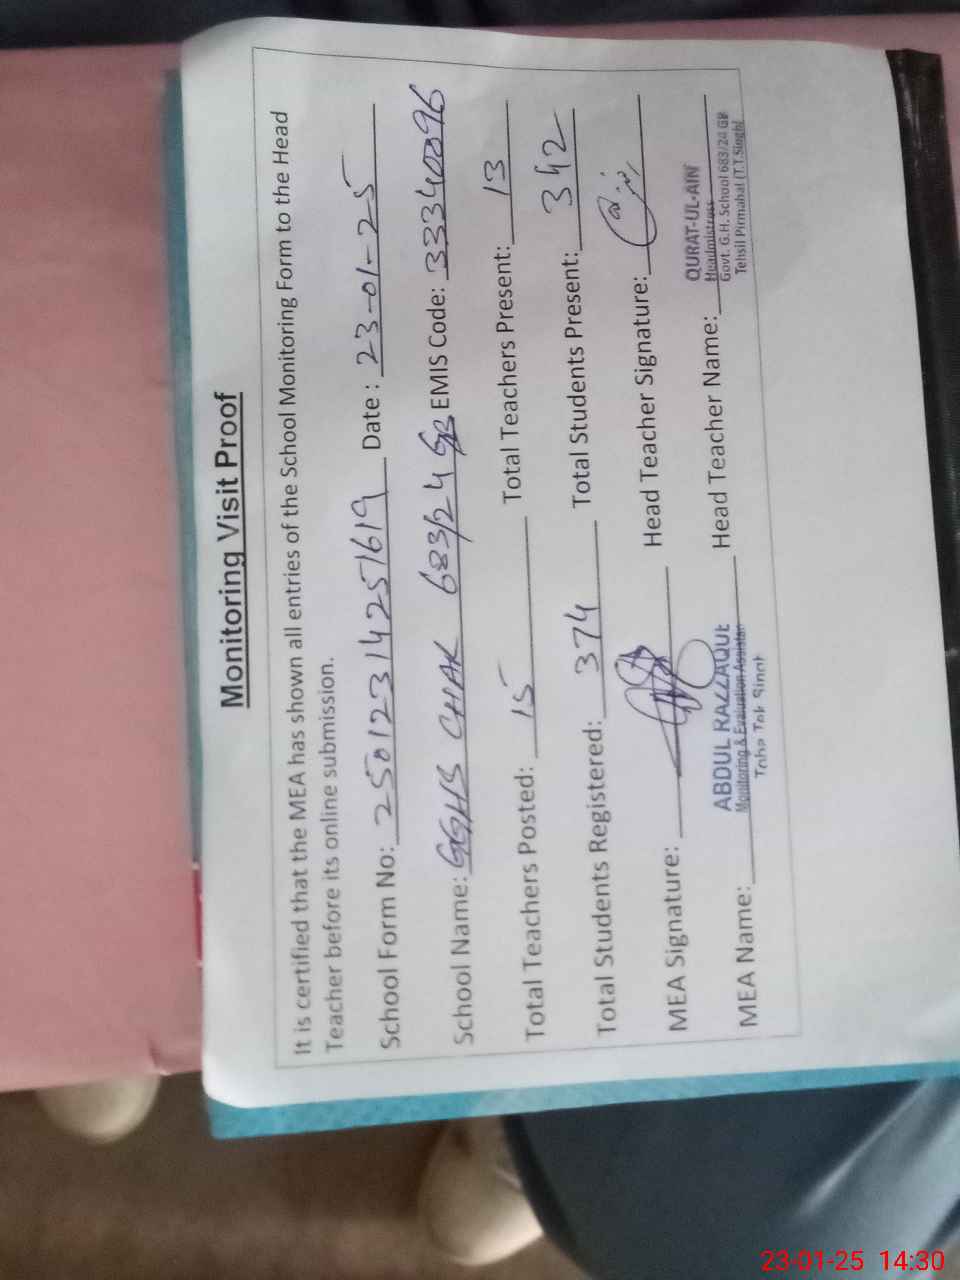 Monitoring Visit Proof
It is certified that the MEA has shown all entries of the School Monitoring Form to the Head
Teacher before its online submission.
School Form No: 25012314251619 Date : 23-01-25
School Name: GGHS CHAK 683/24 GB EMIS Code: 33340096
Total Teachers Posted: 15 Total Teachers Present: 13
Total Students Registered: 374 Total Students Present: 342
MEA Signature: Head Teacher Signature:
MEA Name: ABDUL RAZZAQUE Head Teacher Name: QURAT-UL-AIN
Monitoring & Evaluation Assistan Headmistress
Toba Tek Singh Govt. G.H. School 683/24 GB
Tehsil Pirmahal (T.T.Singh)
23-01-25 14:30